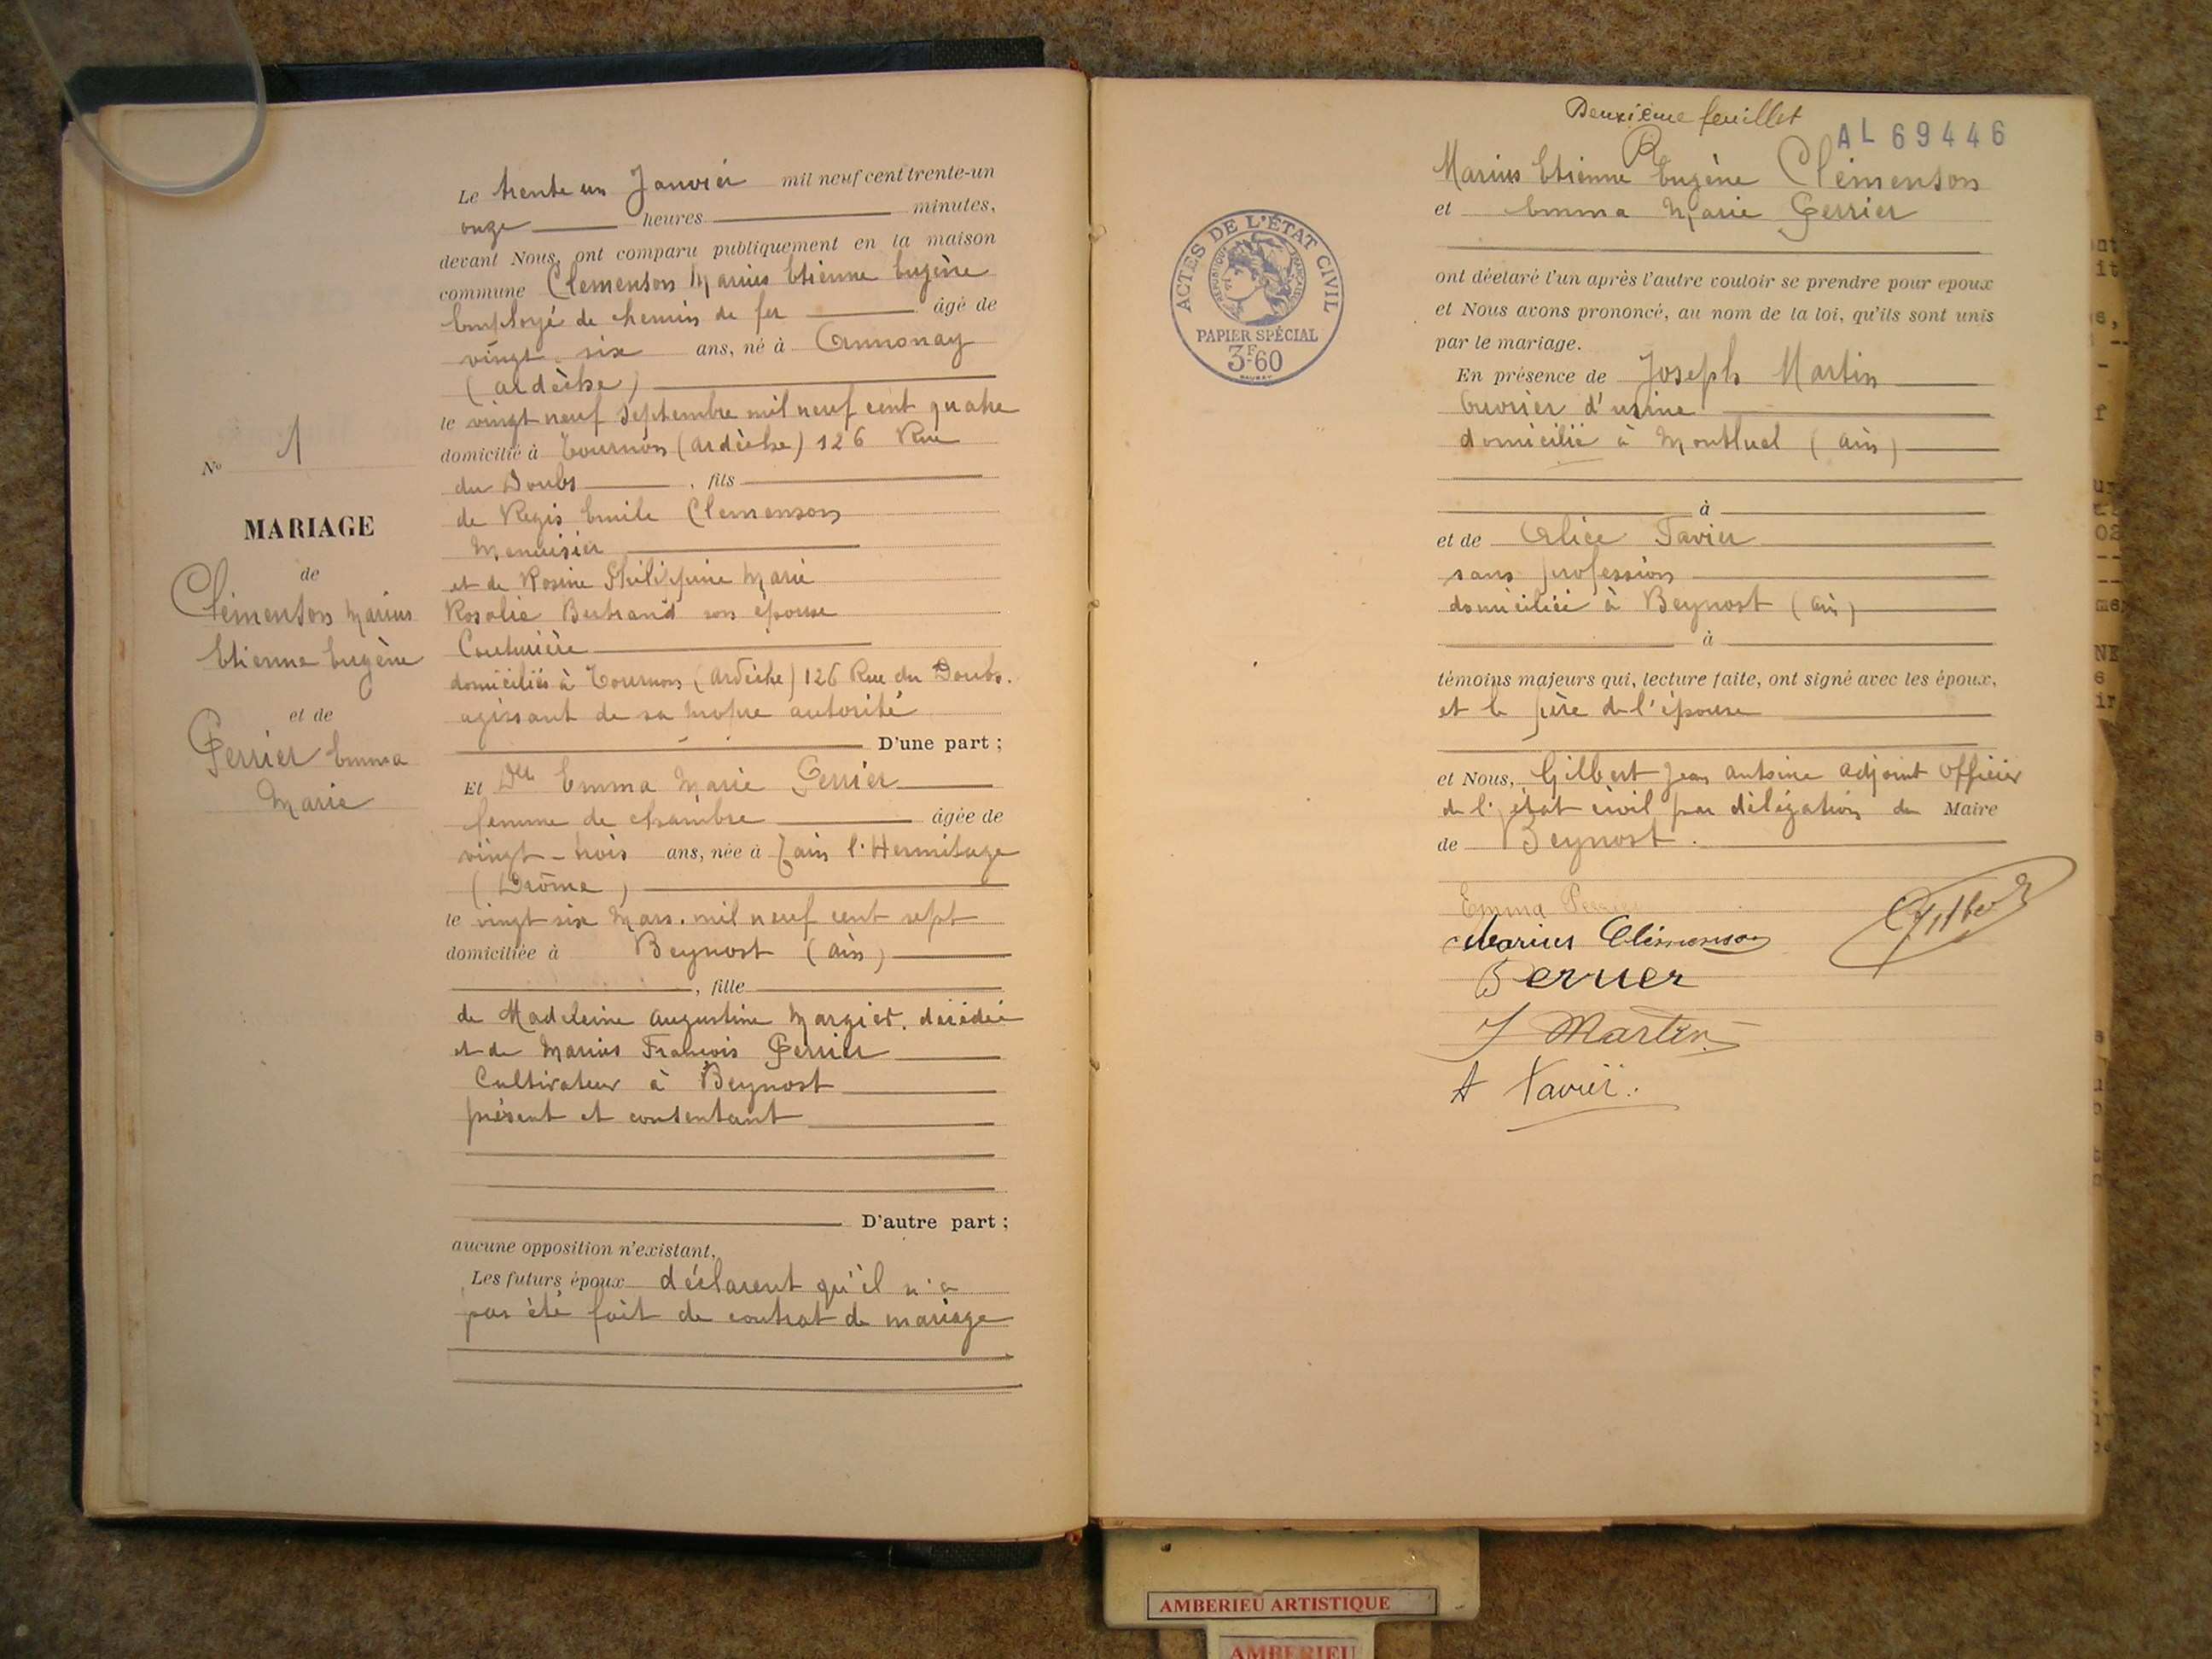 Le trente un Janvier mil neuf cent trente-un
onze heures minutes,
devant Nous, ont comparu publiquement en la maison
commune Clemenson Marius Etienne Eugène
Employé de chemin de fer âgé de
vingt-six ans, né à Annonay
(Ardèche)
le vingt neuf Septembre mil neuf cent quatre
domicilié à Tournon (Ardèche) 126 Rue
du Doubs, fils
de Régis Emile Clemenson
Menuisier
et de Rosine Philippine Marie
Rosalie Bertrand son épouse
Couturière
domiciliés à Tournon (Ardèche) 126 Rue du Doubs.
agissant de sa propre autorité
D'une part ;
Et Dlle Emma Marie Perrier
femme de chambre âgée de
vingt-trois ans, née à Tain l'Hermitage
(Drôme)
le vingt six Mars. mil neuf cent sept
domiciliée à Beynost (Ain)
, fille
de Madeleine Augustine Margier. décédée
et de Marius François Perrier
Cultivateur à Beynost
présent et consentant
D'autre part ;
aucune opposition n'existant,
Les futurs époux déclarent qu'il n'a
pas été fait de contrat de mariage
No 1
MARIAGE
de
Clémenson Marius
Etienne Eugène
et de
Perrier Emma
Marie
Deuxième feuillet
AL 69446
Marius Etienne Eugène Clémenson
et Emma Marie Perrier
ont déclaré l'un après l'autre vouloir se prendre pour époux
et Nous avons prononcé, au nom de la loi, qu'ils sont unis
par le mariage.
En présence de Joseph Martin
Ouvrier d'usine
domicilié à Montluel (Ain)
à
et de Alice Tavier
sans profession
domiciliée à Beynost (Ain)
à
témoins majeurs qui, lecture faite, ont signé avec les époux,
et le père de l'épouse
et Nous, Gilbert Jean Antoine Adjoint Officier
de l'état civil par délégation du Maire
de Beynost.
Emma Perrier
Marius Clémenson
Gilbert
Perrier
J Martin
A Tavier.
ACTES DE L'ÉTAT CIVIL
RÉPUBLIQUE FRANÇAISE
PAPIER SPÉCIAL
3F60
AMBERIEU ARTISTIQUE
AMBERIEU